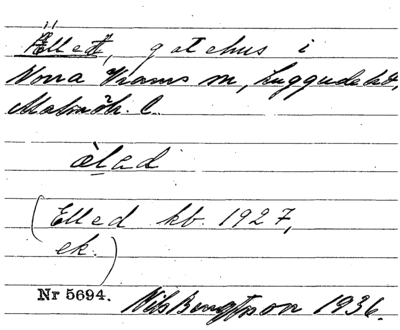 Ället, gatehus i
Norra Vrams sn, Luggude hd,
Malmöh. l.
àlad
(Elled kb. 1927,
ek.)
Nr 5694. Nils Bengtsson 1936.